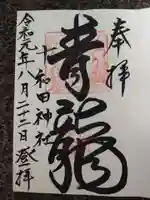 奉拝
青龍
十和田神社
令和元年八月二十三日登拝